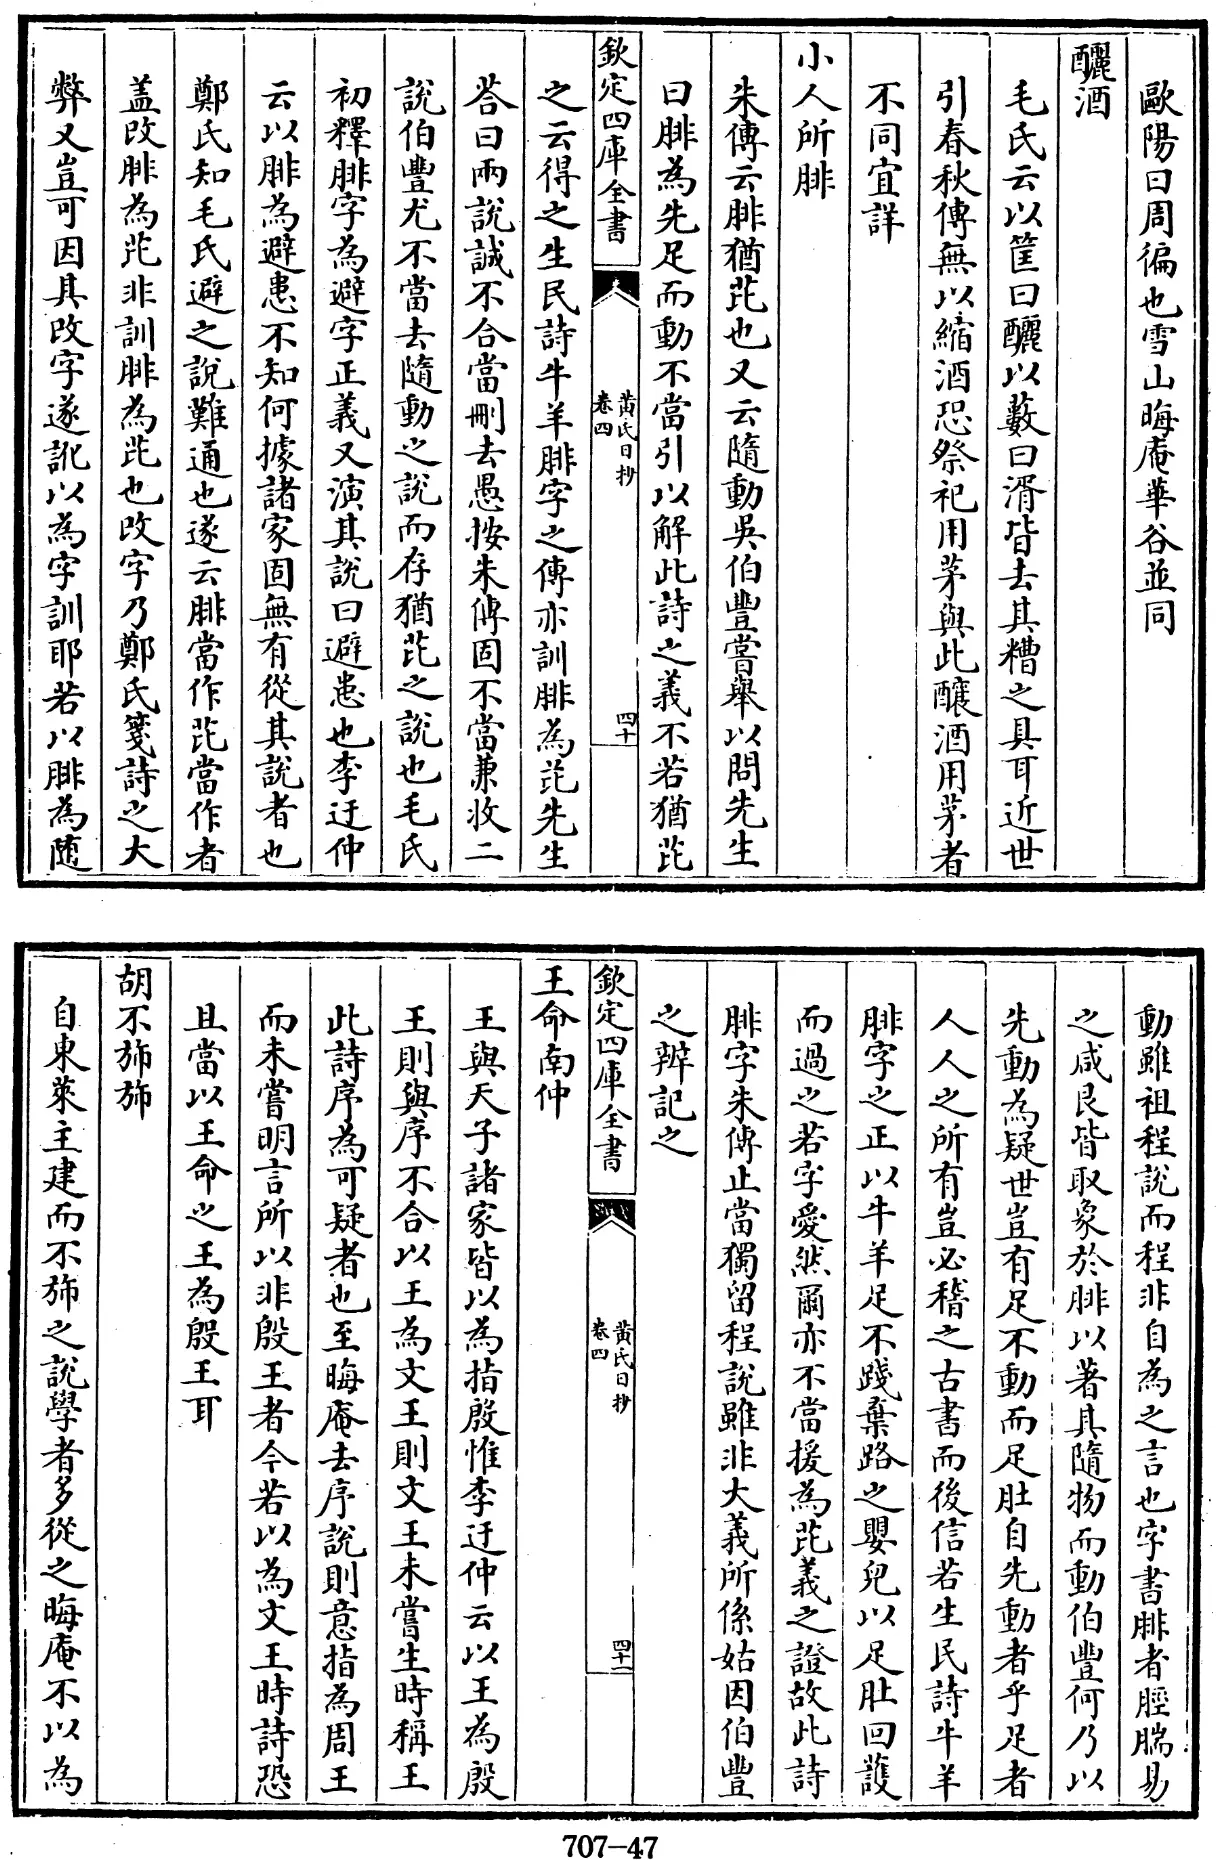 歐陽曰周徧也雪山晦庵華谷並同
釃酒
毛氏云以筐曰釃以藪曰湑皆去其糟之具耳近世
引春秋傳無以縮酒恐祭祀用茅與此釀酒用茅者
不同宜詳
小人所腓
朱傳云腓猶芘也又云隨動吳伯豐嘗舉以問先生
曰腓為先足而動不當引以解此詩之義不若猶芘
欽定四庫全書
黄氏日抄
卷四
四十
之云得之生民詩牛羊腓字之傳亦訓腓為芘先生
答曰兩說誠不合當刪去愚按朱傳固不當兼收二
說伯豐尤不當去隨動之說而存猶芘之說也毛氏
初釋腓字為避字正義又演其說曰避患也李迂仲
云以腓為避患不知何據諸家固無有從其說者也
鄭氏知毛氏避之說難通也遂云腓當作芘當作者
盖改腓為芘非訓腓為芘也改字乃鄭氏箋詩之大
弊又豈可因其改字遂訛以為字訓耶若以腓為隨
動雖祖程說而程非自為之言也字書腓者脛腨易
之咸艮皆取象於腓以著其隨物而動伯豐何乃以
先動為疑世豈有足不動而足肚自先動者乎足者
人人之所有豈必稽之古書而後信若生民詩牛羊
腓字之正以牛羊足不踐棄路之嬰兒以足肚回護
而過之若字愛然爾亦不當援為芘義之證故此詩
腓字朱傳止當獨留程說雖非大義所係姑因伯豐
之辨記之
欽定四庫全書
黄氏日抄
卷四
四十一
王命南仲
王與天子諸家皆以為指殷惟李迂仲云以王為殷
王則與序不合以王為文王則文王未嘗生時稱王
此詩序為可疑者也至晦庵去序說則意指為周王
而未嘗明言所以非殷王者今若以為文王時詩恐
且當以王命之王為殷王耳
胡不斾斾
自東萊主建而不斾之說學者多從之晦庵不以為
707-47